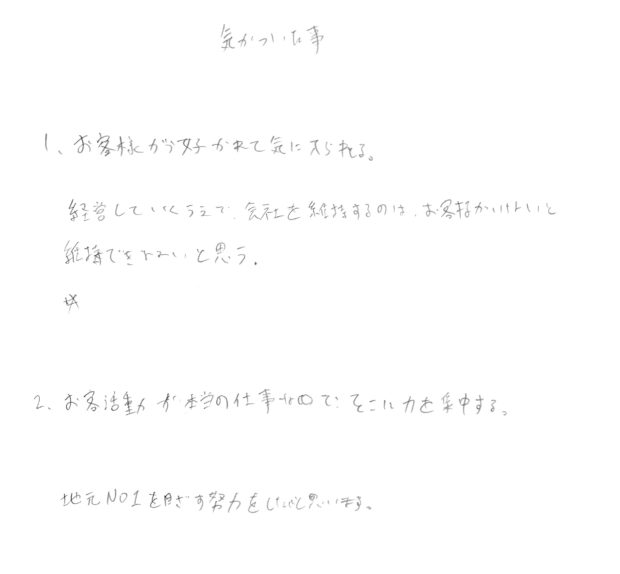 気がついた事
1、お客様から好かれて気に入られる。
経営していくうえで、会社を維持するのは、お客様がいないと
維持できないと思う。
2、お客活動が本当の仕事なので、そこに力を集中する。
地元NO1を目ざす努力をしたいと思います。